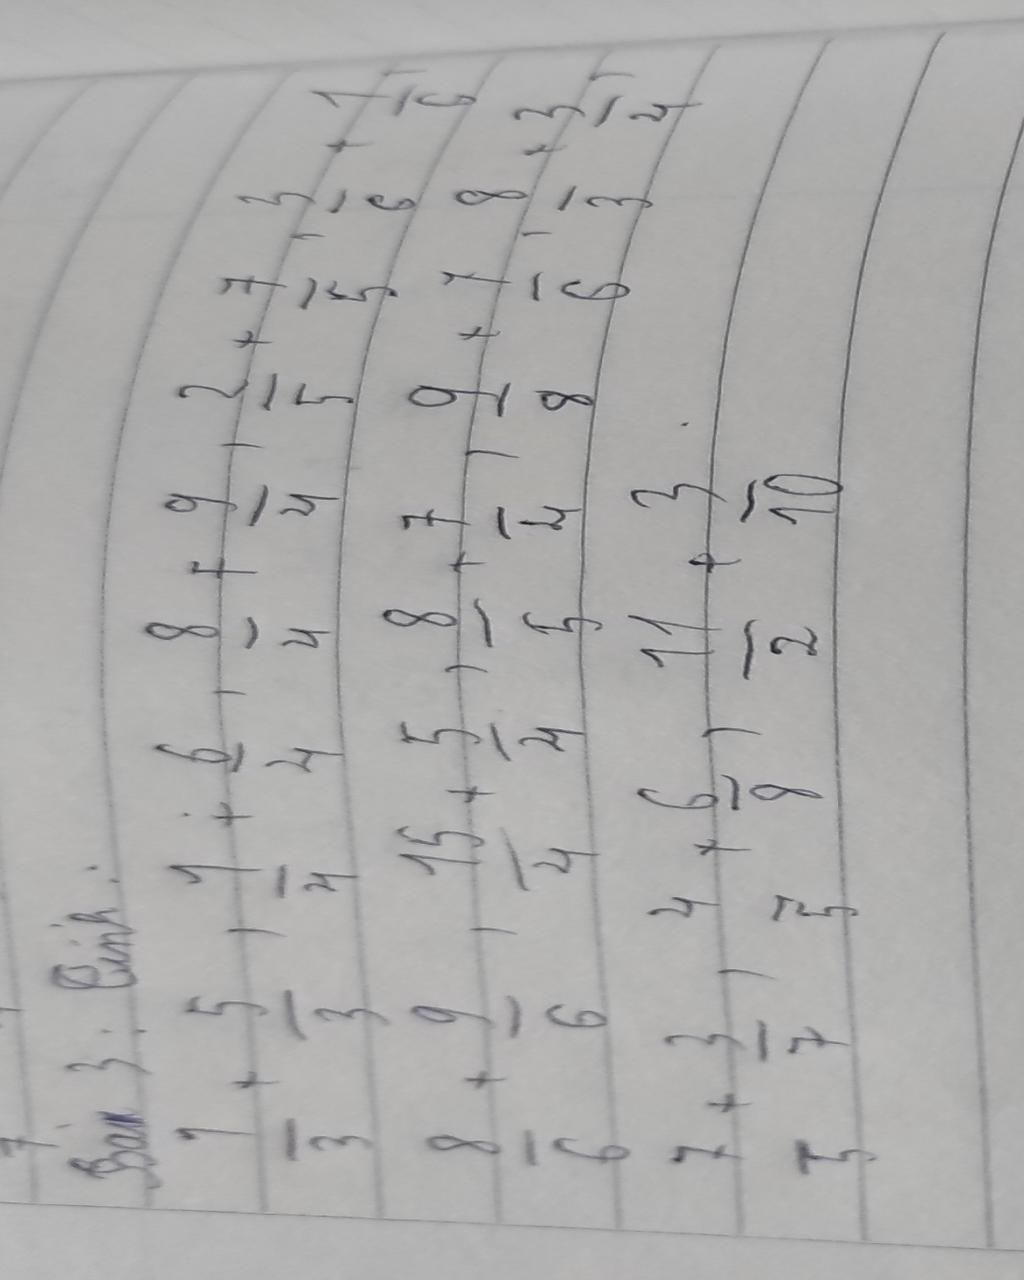 Bài 3: Tính:
1/3 + 5/3, 1/4 + 6/4, 8/4 + 9/4, 2/5 + 7/5, 3/6 + 1/6,
8/6 + 9/6, 15/4 + 5/4, 8/5 + 7/4, 9/8 + 1/6, 8/3 + 3/4,
7/5 + 3/7, 4/5 + 6/8, 11/2 + 3/10